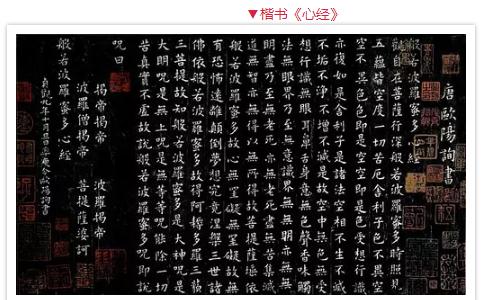 ▼楷书《心经》
唐歐陽詢書
般若波羅蜜多心經
觀自在菩薩行深般若波羅蜜多時照見
五蘊皆空度一切苦厄舍利子色不異空
空不異色色即是空空即是色受想行識
亦復如是舍利子是諸法空相不生不滅
不垢不淨不增不減是故空中無色無受
想行識無眼耳鼻舌身意無色聲香味觸
法無眼界乃至無意識界無無明亦無無
明盡乃至無老死亦無老死盡無苦集滅
道無智亦無得以無所得故菩提薩埵依
般若波羅蜜多故心無罣礙無罣礙故無
有恐怖遠離顛倒夢想究竟涅槃三世諸
佛依般若波羅蜜多故得阿耨多羅三藐
三菩提故知般若波羅蜜多是大神呪是
大明呪是無上呪是無等等呪能除一切
苦真實不虛故說般若波羅蜜多呪即說
呪曰
揭帝揭帝 波羅揭帝
波羅僧揭帝 菩提薩婆訶
般若波羅蜜多心經
貞觀九年十月旦日率更令歐陽詢書